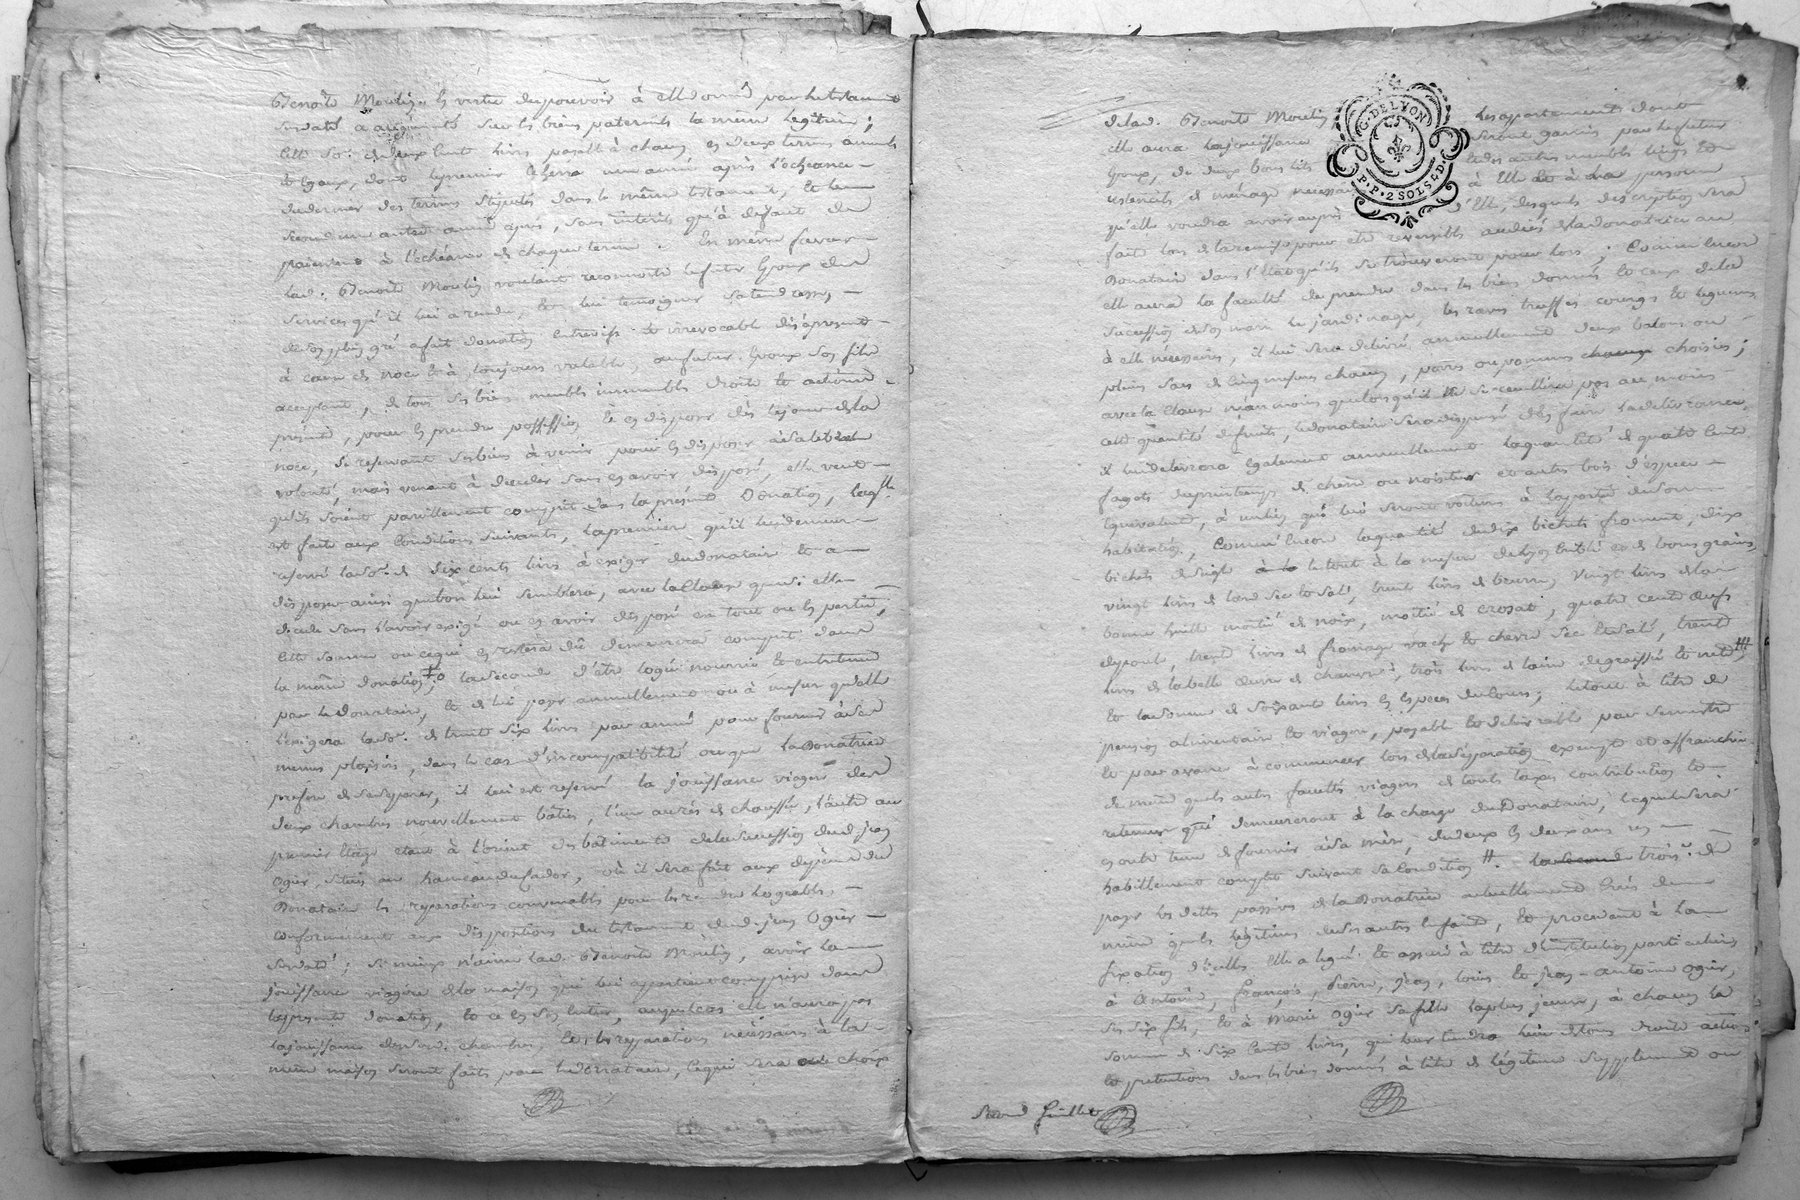 Benoite Moulin en vertu du pouvoir à elle donné par le testament
susdaté a augmenté sur les biens paternels la même légitime;
cette so.e de deux cents livres payable à chacun en deux termes annuels
et égaux, dont le premier une année après l'échéance
du dernier des termes stipulés dans le même testament, et le
second une autre année après, sans intérêts qu'à défaut de
paiement à l'échéance de chaque terme. En même faveur
lad. Benoite Moulin voulant reconnoitre le futur époux des
services qu'il lui a rendu, et lui temoigner sa tendresse,
de son plein gré a fait donation entrevifs et irrevocable dès à présent
à cause de noce et à toujours valable, au futur époux son fils
acceptant, de tous ses biens meubles immeubles droits et actions
présents, pour en prendre possession et en disposer dès le jour de la
noce, se reservant ses biens à venir pour en disposer à sa
volonté, mais venant à deceder sans en avoir disposé, elle veut
qu'ils soient pareillement compris dans la présente Donation, laq.lle
est faite aux conditions suivantes, la première qu'il lui demeure
reservé la so.e de six cents livres à exiger du donataire et a
disposer ainsi que bon lui semblera, avec la clause que si elle
décède sans l'avoir exigé ou en avoir disposé en tout ou en partie,
cette somme ou ce qui en restera dû demeurera compris dans
la même donation; la seconde d'être logée nourrie et entretenue
par le Donataire, et de lui payer annuellement ou à mesure qu'elle
l'exigera la so.e de trente six livres par année pour fournir à ses
menus plaisirs, dans le cas d'incompatibilité ou que la Donatrice
préfère de se séparer, il lui est reservé la jouissance viagère des
deux chambres nouvellement bâties, l'une au rés de chaussée, l'autre au
premier étage étant à l'orient des bâtiments de la succession dud. jean
Ogier, situés au hameau du Cador, où il sera fait aux dépens du
Donataire les reparations convenables pour les rendre logeables,
conformement aux dispositions du testament dud. jean Ogier
susdaté; si mieux n'aime lad. Benoite Moulin, avoir la
jouissance viagère de la maison qui lui appartient comprise dans
la présente donation, et ce en son entier, auquel cas elle n'aura pas
la jouissance desd. chambres, et les reparations nécessaires à la
même maison seront faites par le donataire, ce qui sera choix
de lad. Benoite Moulin, les appartements dont
elle aura la jouissance seront garnis par le futur
époux, de deux bons lits et des autres meubles linges et
ustenciles de ménage necessaires à elle et à la personne
qu'elle voudra avoir auprès d'elle, desquels description sera
fait lors de la remise pour être reversibles au décès de la donatrice au
Donataire dans l'état qu'ils se trouveront pour lors; Comme encor
elle aura la faculté de prendre dans les biens donnés et ceux de la
succession de son mari le jardinage, les raves truffes courges et legumes
à elle nécessaires, il lui sera délivré annuellement deux
pleins sacs de cinq mesures chacun, poires ou pommes choisies;
avec la clause néanmoins que lorsqu'il ne se recueillira pas au moins
cette quantité de fruits, le donataire sera dispensé d'en faire la delivrance,
il lui delivrera également annuellement la quantité de quatre cents
fagots du printemps de chêne ou noisetier et autres bois d'espèce
équivalente, qui lui seront voiturés à la porte de son
habitation, comme encor la quantité de dix bichets froment, dix
bichets de seigle le tout à la mesure de lyon comble et de bons grains,
vingt livres de lard sec et salé, trente livres de beurre, vingt livres de
bonne huille moitié de noix, moitié de crozat, quatre cents œufs
de poule, trente livres de fromage vache et chevre sec et salé, trente
livres de la belle œuvre de chanvre, trois livres de laine degraissée et nette
et la somme de soixante livres en espèces de cours; le tout à titre de
pension alimentaire et viagère, payable et delivrable par semestre
et par avance à commencer lors de la séparation exempt et affranchie
de même que les autres facultés viagères de toutes taxes contributions et
retenues qui demeureront à la charge du Donataire, lequel sera
en outre tenu de fournir à sa mère, de deux en deux ans un
habillement complet suivant sa condition. la seconde trois.e de
payer les dettes passives de la Donatrice actuellement créés de
même que les légitimes de ses autres enfans, et procedant à la
fixation d'icelles elle a legué et assuré à titre d'institution particulière
à Antoine, françois, Pierre, Jean, louis et jean-antoine Ogier,
ses six fils, et à Marie Ogier sa fille la plus jeune, à chacun la
somme de six cents livres, qui leur tiendra lieu de tous droits actions
et pretentions dans les biens donnés à titre de légitime supplement ou
Second feuillet
G. DE LYON
P.P. 2 SOLS 4 D.